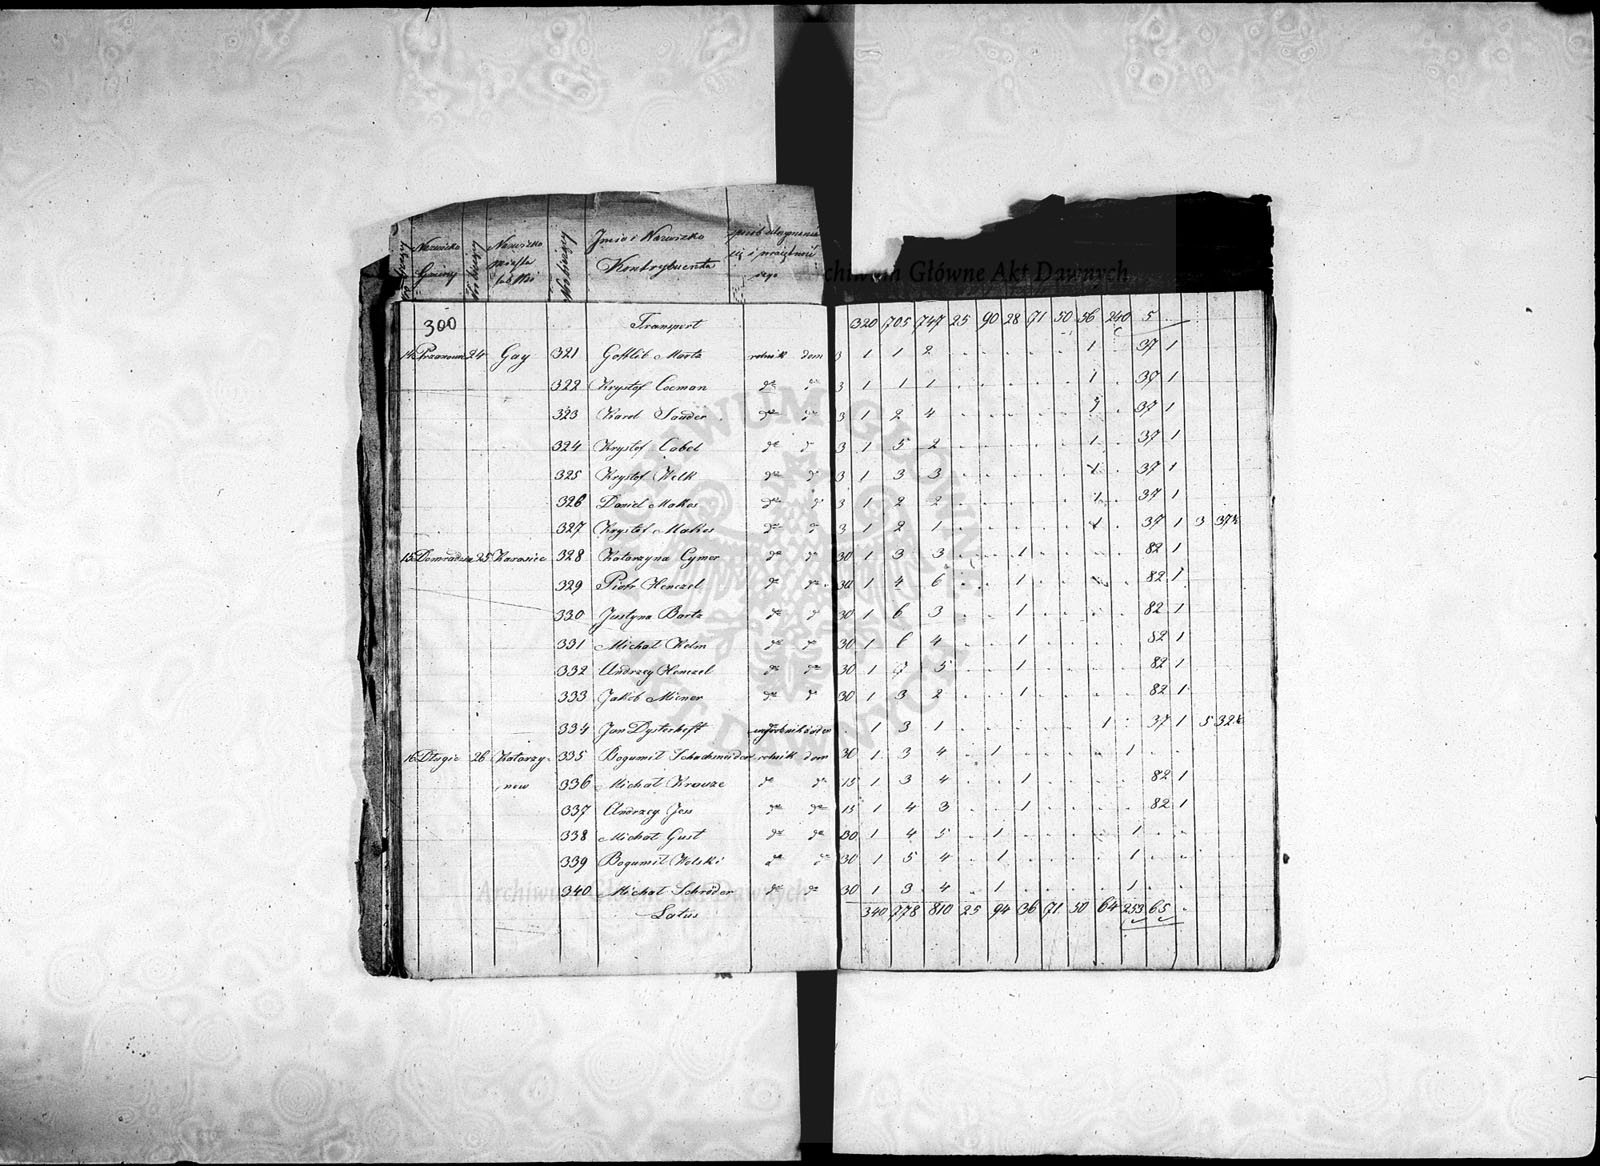 Nazwisko Gminy Nazwisko miasta lub Wsi Jmie i Nazwisko Kontrybuenta
Archiwum Główne Akt Dawnych
300 Transport 320 705 747 25 90 28 71 50 56 240 5
14 24 Gay 321 Gottlib Martz rolnik dom 3 1 1 2 . . . . . 1 . 37 1
322 Krystof Cocman do do 3 1 1 1 . . . . . 1 . 37 1
323 Karol Sauder do do 3 1 2 4 . . . . . 1 . 37 1
324 Krystof Cabel do do 3 1 5 2 . . . . . 1 . 37 1
325 Krystof Welk do do 3 1 3 3 . . . . . 1 . 37 1
326 Daniel Makes do do 3 1 2 2 . . . . . 1 . 37 1
327 Krystof Makes do do 3 1 2 1 . . . . . 1 . 37 1 3 37½
15 25 328 Katarzyna Cymer do do 30 1 3 3 . . 1 . . . . 82 1
329 Piotr Henczel do do 30 1 4 6 . . 1 . . . . 82 1
330 Justyna Bartz do do 30 1 6 3 . . 1 . . . . 82 1
331 Michał Kelm do do 30 1 6 4 . . 1 . . . . 82 1
332 Andrzey Henczel do do 30 1 7 5 . . 1 . . . . 82 1
333 Jakób Micner do do 30 1 3 2 . . 1 . . . . 82 1
334 Jan Dysterheft . 1 3 1 . . . . . 1 . 37 1 5 32½
16 Długie 26 Katarzy- 335 Bogumił Schachsneider rolnik dom 30 1 3 4 . 1 . . . . 1 . .
now 336 Michał Krauze do do 15 1 3 4 . . 1 . . . . 82 1
337 Andrzey Jess do do 15 1 4 3 . . 1 . . . . 82 1
338 Michał Gust do do 30 1 4 5 . 1 . . . . 1 . .
339 Bogumił Wolski do do 30 1 5 4 . 1 . . . . 1 . .
340 Michał Schröder do do 30 1 3 4 . 1 . . . . 1 . .
Archiwum Główne Akt Dawnych
Latus 340 778 810 25 94 36 71 50 64 253 65